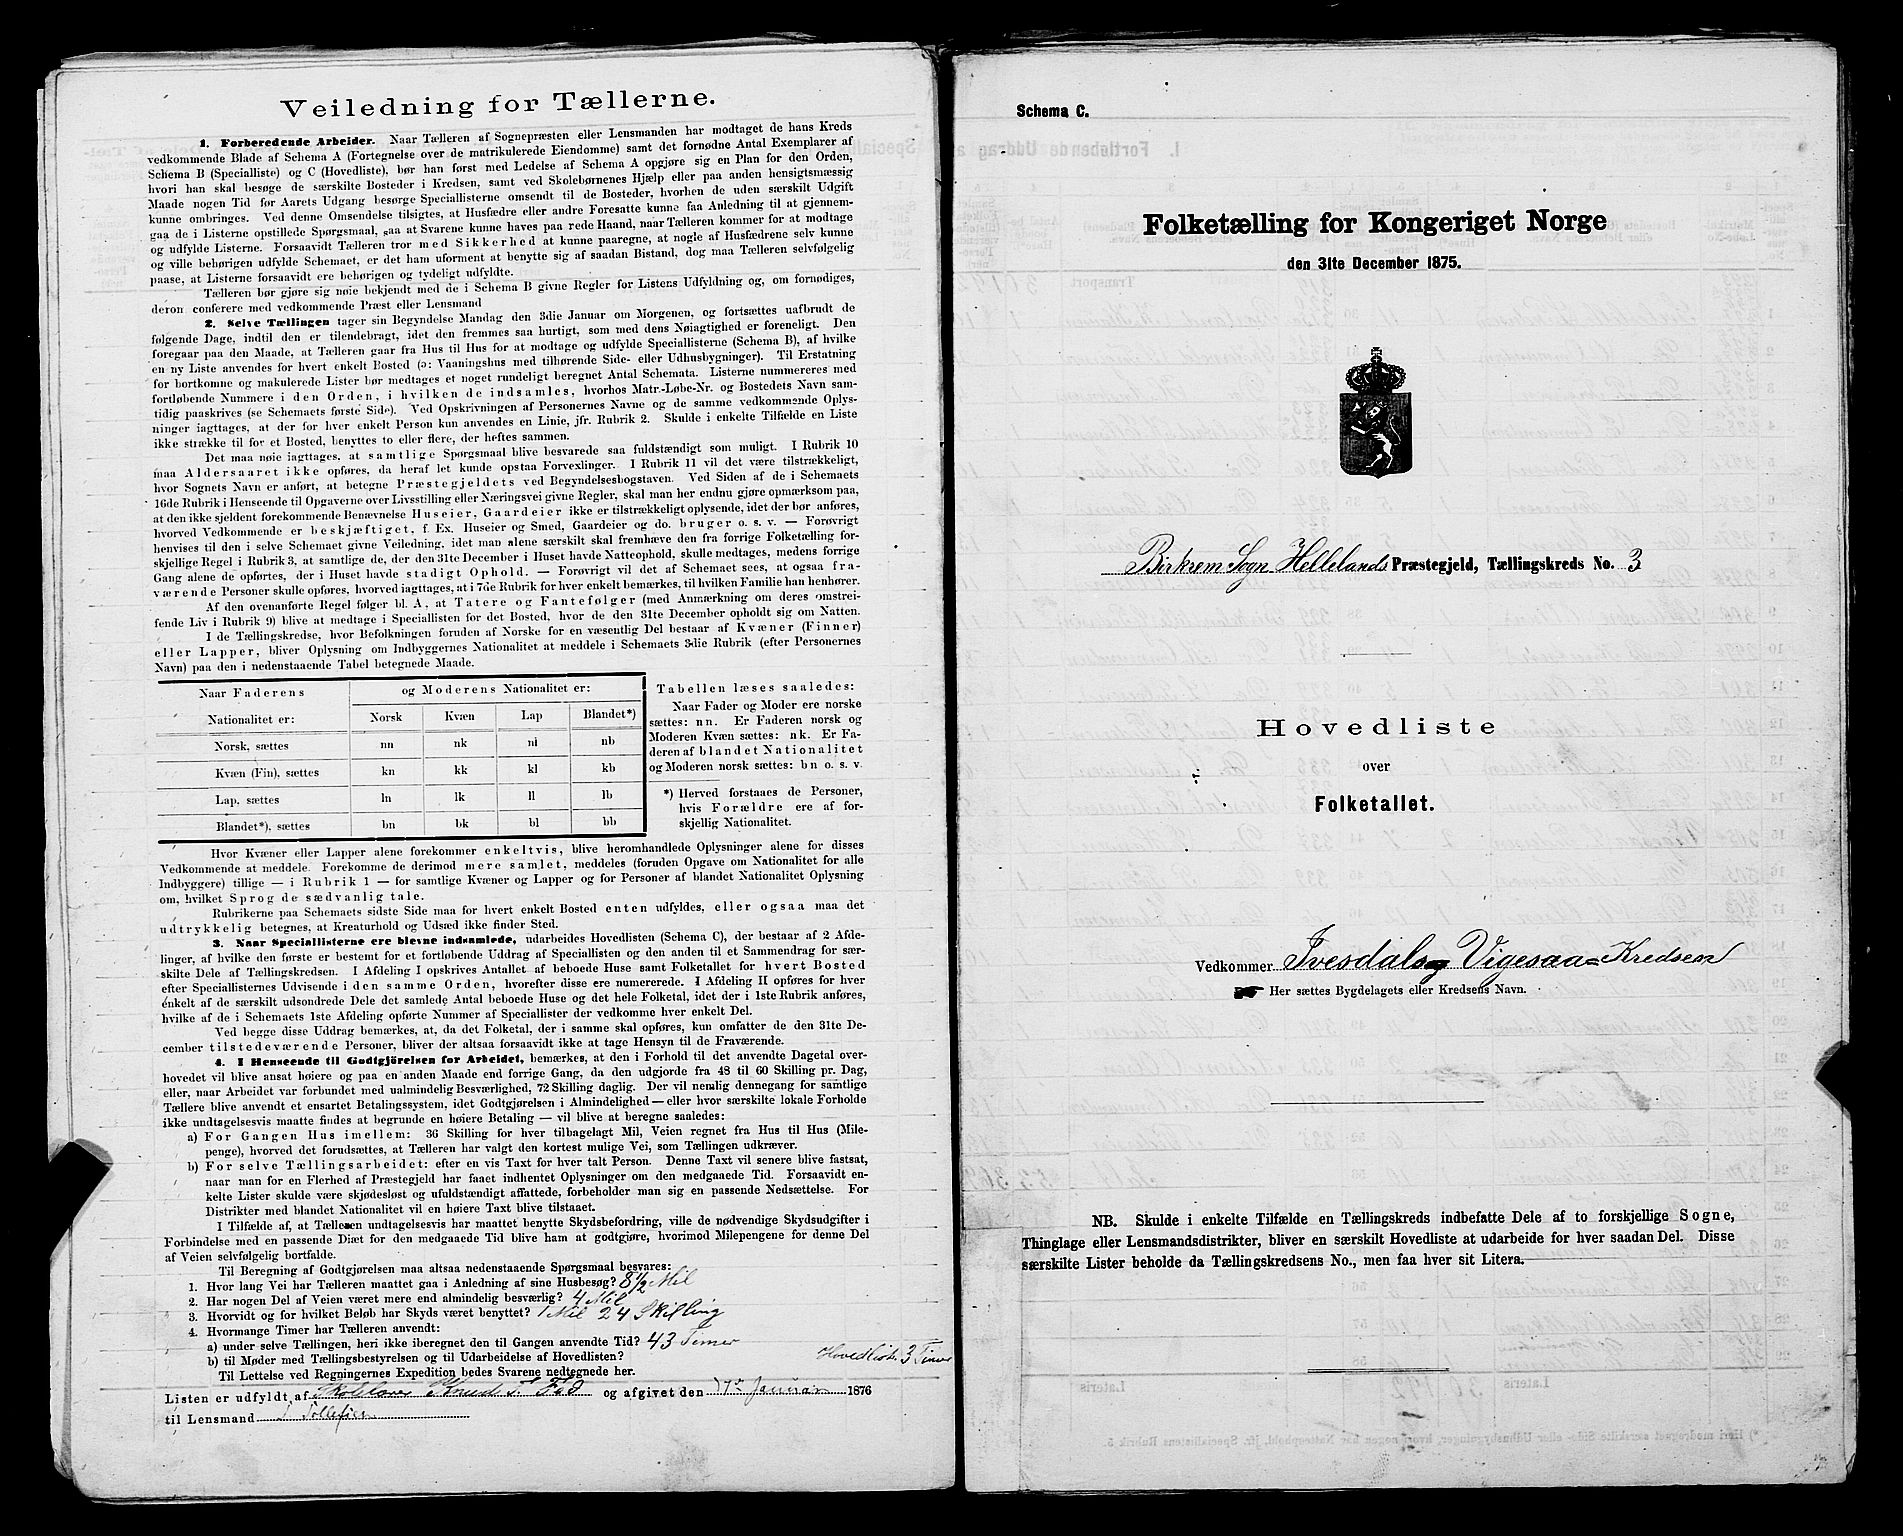 Veiledning for Tællerne.
1. Forberedende Arbeider. Naar Tælleren af Sognepræsten eller Lensmanden har modtaget de hans Kreds
vedkommende Blade af Schema A (Fortegnelse over de matrikulerede Eiendomme) samt det fornødne Antal Exemplarer af
Schema B (Specialliste) og C (Hovedliste), bør han først med Ledelse af Schema A opgjøre sig en Plan for den Orden,
hvori han skal besøge de særskilte Bosteder i Kredsen, samt ved Skolebørnenes Hjælp eller paa anden hensigtsmæssig
Maade nogen Tid før Aarets Udgang besørge Speciallisterne omsendt til de Bosteder, hvorhen de uden særskilt Udgift
kunne ombringes. Ved denne Omsendelse tilsigtes, at Husfædre eller andre Foresatte kunne faa Anledning til at gjennem-
gaa de i Listerne opstillede Spørgsmaal, saa at Svarene kunne haves paa rede Haand, naar Tælleren kommer for at modtage
og udfylde Listerne. Forsaavidt Tælleren tror med Sikkerhed at kunne paaregne, at nogle af Husfædrene selv kunne
og ville behørigen udfylde Schemaet, er det ham uforment at benytte sig af saadan Bistand, dog maa Tælleren selvfølgelig
paase, at Listerne forsaavidt ere behørigen og tydeligt udfyldte.
Tælleren bør gjøre sig nøie bekjendt med de i Schema B givne Regler for Listens Udfyldning og, om fornødiges,
deron conferere med vedkommende Præst eller Lensmand
2. Selve Tællingen tager sin Begyndelse Mandag den 3die Januar om Morgenen, og fortsættes uafbrudt de
følgende Dage, indtil den er tilendebragt, idet den fremmes saa hurtigt, som med dens Nøiagtighed er foreneligt. Den
foregaar paa den Maade, at Tælleren gaar fra Hus til Hus for at modtage og udfylde Speciallisterne (Schema B), af hvilke
en ny Liste anvendes for hvert enkelt Bosted (ɔ: Vaaningshus med tilhørende Side- eller Udhusbygninger). Til Erstatning
for bortkomne og makulerede Lister bør medtages et noget rundeligt beregnet Antal Schemata. Listerne nummereres med
fortløbende Nummere i den Orden, i hvilken de indsamles, hvorhos Matr.-Løbe-Nr. og Bostedets Navn sam-
tidig paaskrives (se Schemaets første Side). Ved Opskrivningen af Personernes Navne og de samme vedkommende Oplys-
ninger iagttages, at der for hver enkelt Person kun anvendes en Linie, jfr. Rubrik 2. Skulde i enkelte Tilfælde en Liste
ikke strække til for et Bosted, benyttes to eller flere, der heftes sammen.
Det maa nøie iagttages, at samtlige Spørgsmaal blive besvarede saa fuldstændigt som muligt. I Rubrik 10
maa Aldersaaret ikke opføres, da heraf let kunde opstaa Forvexlinger. I Rubrik 11 vil det være tilstrækkeligt,
hvor Sognets Navn er anført, at betegne Præstegjeldets ved Begyndelsesbogstaven. Ved Siden af de i Schemaets
16de Rubrik i Henseende til Opgaverne over Livsstilling eller Næringsvei givne Regler, skal man her endnu gjøre opmærksom paa,
at den ikke sjeldent forekommende Benævnelse Huseier, Gaardeier ikke er tilstrækkeligt oplysende, idet der bør anføres,
hvorved Vedkommende er beskjæftiget, f. Ex. Huseier og Smed, Gaardeier og do. bruger o. s. v. — Forøvrigt
henvises til den i selve Schemaet givne Veiledning, idet man alene særskilt skal fremhæve den fra forrige Folketælling for-
skjellige Regel i Rubrik 3, at samtlige de, der den 31te December i Huset havde Natteophold, skulle medtages, medens forrige
Gang alene de opførtes, der i Huset havde stadigt Ophold. — Forøvrigt vil det af Schemaet sees, at ogsaa fra-
værende Personer skulle opføres, hvorved iagttages, at i 7de Rubrik for hver enkelt bemærkes, til hvilken Familie han henhører.
Af den ovenanførte Regel følger bl. A., at Tatere og Fantefølger (med Anmærkning om deres omstrei-
fende Liv i Rubrik 9) blive at medtage i Speciallisten for det Bosted, hvor de den 31te December opholdt sig om Natten.
I de Tællingskredse, hvor Befolkningen foruden af Norske for en væsentlig Del bestaar af Kvæner (Finner)
eller Lapper, bliver Oplysning om Indbyggernes Nationalitet at meddele i Schemaets 3die Rubrik (efter Personernes
Navn) paa den i nedenstaaende Tabel betegnede Maade.
Naar Faderens og Moderens Nationalitet er:
Nationalitet er: Norsk Kvæn Lap Blandet*)
Norsk, sættes nn nk nl nb
Kvæn (Fin), sættes kn kk kl kb
Lap, sættes ln lk ll lb
Blandet*), sættes bn bk bl bb
Tabellen læses saaledes:
Naar Fader og Moder ere norske
sættes: nn. Er Faderen norsk og
Moderen Kvæn sættes: nk. Er Fa-
deren af blandet Nationalitet
og Moderen norsk sættes: bn o. s. v.
*) Herved forstaaes de Personer,
hvis Forældre ere af for-
skjellig Nationalitet.
Hvor Kvæner eller Lapper alene forekommer enkeltvis, blive heromhandlede Oplysninger alene for disses
Vedkommende at meddele. Forekomme de derimod mere samlet, meddeles (foruden Opgave om Nationalitet for alle
Indbyggere) tillige — i Rubrik 1 — for samtlige Kvæner og Lapper og for Personer af blandet Nationalitet Oplysning
om, hvilket Sprog de sædvanlig tale.
Rubrikerne paa Schemaets sidste Side maa for hvert enkelt Bosted enten udfyldes, eller ogsaa maa det
udtrykkelig betegnes, at Kreaturhold og Udsæd ikke finder Sted.
3. Naar Speciallisterne ere blevne indsamlede, udarbeides Hovedlisten (Schema C), der bestaar af 2 Afde-
linger, af hvilke den første er bestemt for et fortløbende Uddrag af Speciallisten og den anden til et Sammendrag for sær-
skilte Dele af Tællingskredsen. I Afdeling I opskrives Antallet af beboede Huse samt Folketallet for hvert Bosted
efter Speciallisternes Udvisende i den samme Orden, hvorefter disse ere nummererede. I Afdeling II opføres for hver
enkelt af de særskilt udsondrede Dele det samlede Antal beboede Huse og det hele Folketal, idet der i 1ste Rubrik anføres,
hvilke af de i Schemaets 1ste Afdeling opførte Nummer af Specialister der vedkomme hver enkelt Del.
Ved begge disse Uddrag bemærkes, at, da det Folketal, der i samme skal opføres, kun omfatter de den 31te De-
cember tilstedeværende Personer, bliver der altsaa forsaavidt ikke at tage Hensyn til de Fraværende.
4. I Henseende til Godtgjörelsen for Arbeidet, bemærkes, at den i Forhold til det anvendte Dagetal over-
hovedet vil blive ansat høiere og paa en anden Maade end forrige Gang, da den udgjorde fra 48 til 60 Skilling pr. Dag,
eller, naar Arbeidet var forbundet med ualmindelig Besværlighed, 72 Skilling daglig. Der vil nemlig dennegang for samtlige
Tællere blive anvendt et ensartet Betalingssystem, idet Godtgjørelsen i Almindelighed — eller hvor særskilte lokale Forholde
ikke undtagelsesvis maatte findes at begrunde en høiere Betaling — vil blive at beregne saaledes:
a) For Gangen Hus imellem: 36 Skilling for hver tilbagelagt Mil, Veien regnet fra Hus til Hus (Mile-
penge), hvorved det forudsættes, at Tælleren har valgt den kortest mulige Vei, som Tællingen udkræver.
b) For selve Tællingsarbeidet: efter en vis Taxt for hver talt Person. Denne Taxt vil senere blive fastsat,
naar man for en Flerhed af Præstegjeld har faaet indhentet Oplysninger om den medgaaede Tid. Forsaavidt en-
kelte Lister skulde være skjødesløst og ufuldstændigt affattede, forbeholder man sig en passende Nedsættelse. For
Distrikter med blandet Nationalitet vil en høiere Taxt blive tilstaaet.
I Tilfælde af, at Tælleren undtagelsesvis har maattet benytte Skydsbefordring, ville de nødvendige Skydsudgifter i
Forbindelse med en passende Diæt for den medgaaede Tid blive ham at godtgjøre, hvorimod Milepengene for denne Del
af Veien selvfølgelig bortfalde.
Til Beregning af Godtgjørelsen maa altsaa nedenstaaende Spørgsmaal besvares:
1. Hvor lang Vei har Tælleren maattet gaa i Anledning af sine Husbesøg? 8 1/2 Mil
2. Har nogen Del af Veien været mere end almindelig besværlig? 4 Mil
3. Hvorvidt og for hvilket Beløb har Skyds været benyttet? 1 Mil 24 Skilling
4. Hvormange Timer har Tælleren anvendt:
a) under selve Tællingen, heri ikke iberegnet den til Gangen anvendte Tid? 43 Timer
b) til Møder med Tællingsbestyrelsen og til Udarbeidelse af Hovedlisten? Hovedliste 3 Timer
Til Lettelse ved Regningernes Expedition bedes Svarene nedtegnede her.
Listen er udfyldt af Skolelærer Knud T. og afgivet den 17de Januar 1876
til Lensmand Tollefsen
Schema C.
Folketælling for Kongeriget Norge
den 31te December 1875.
Birkrem Sogn Hellelands Præstegjeld, Tællingskreds No. 3
Hovedliste
over
Folketallet.
Vedkommer Ivesdals og Vigesaa=Kredsen
Her sættes Bygdelagets eller Kredsens Navn.
NB. Skulde i enkelte Tilfælde en Tællingskreds indbefatte Dele af to forskjellige Sogne,
Thinglage eller Lensmandsdistrikter, bliver en særskilt Hovedliste at udarbeide for hver saadan Del. Disse
særskilte Lister beholde da Tællingskredsens No., men faa hver sit Litera.